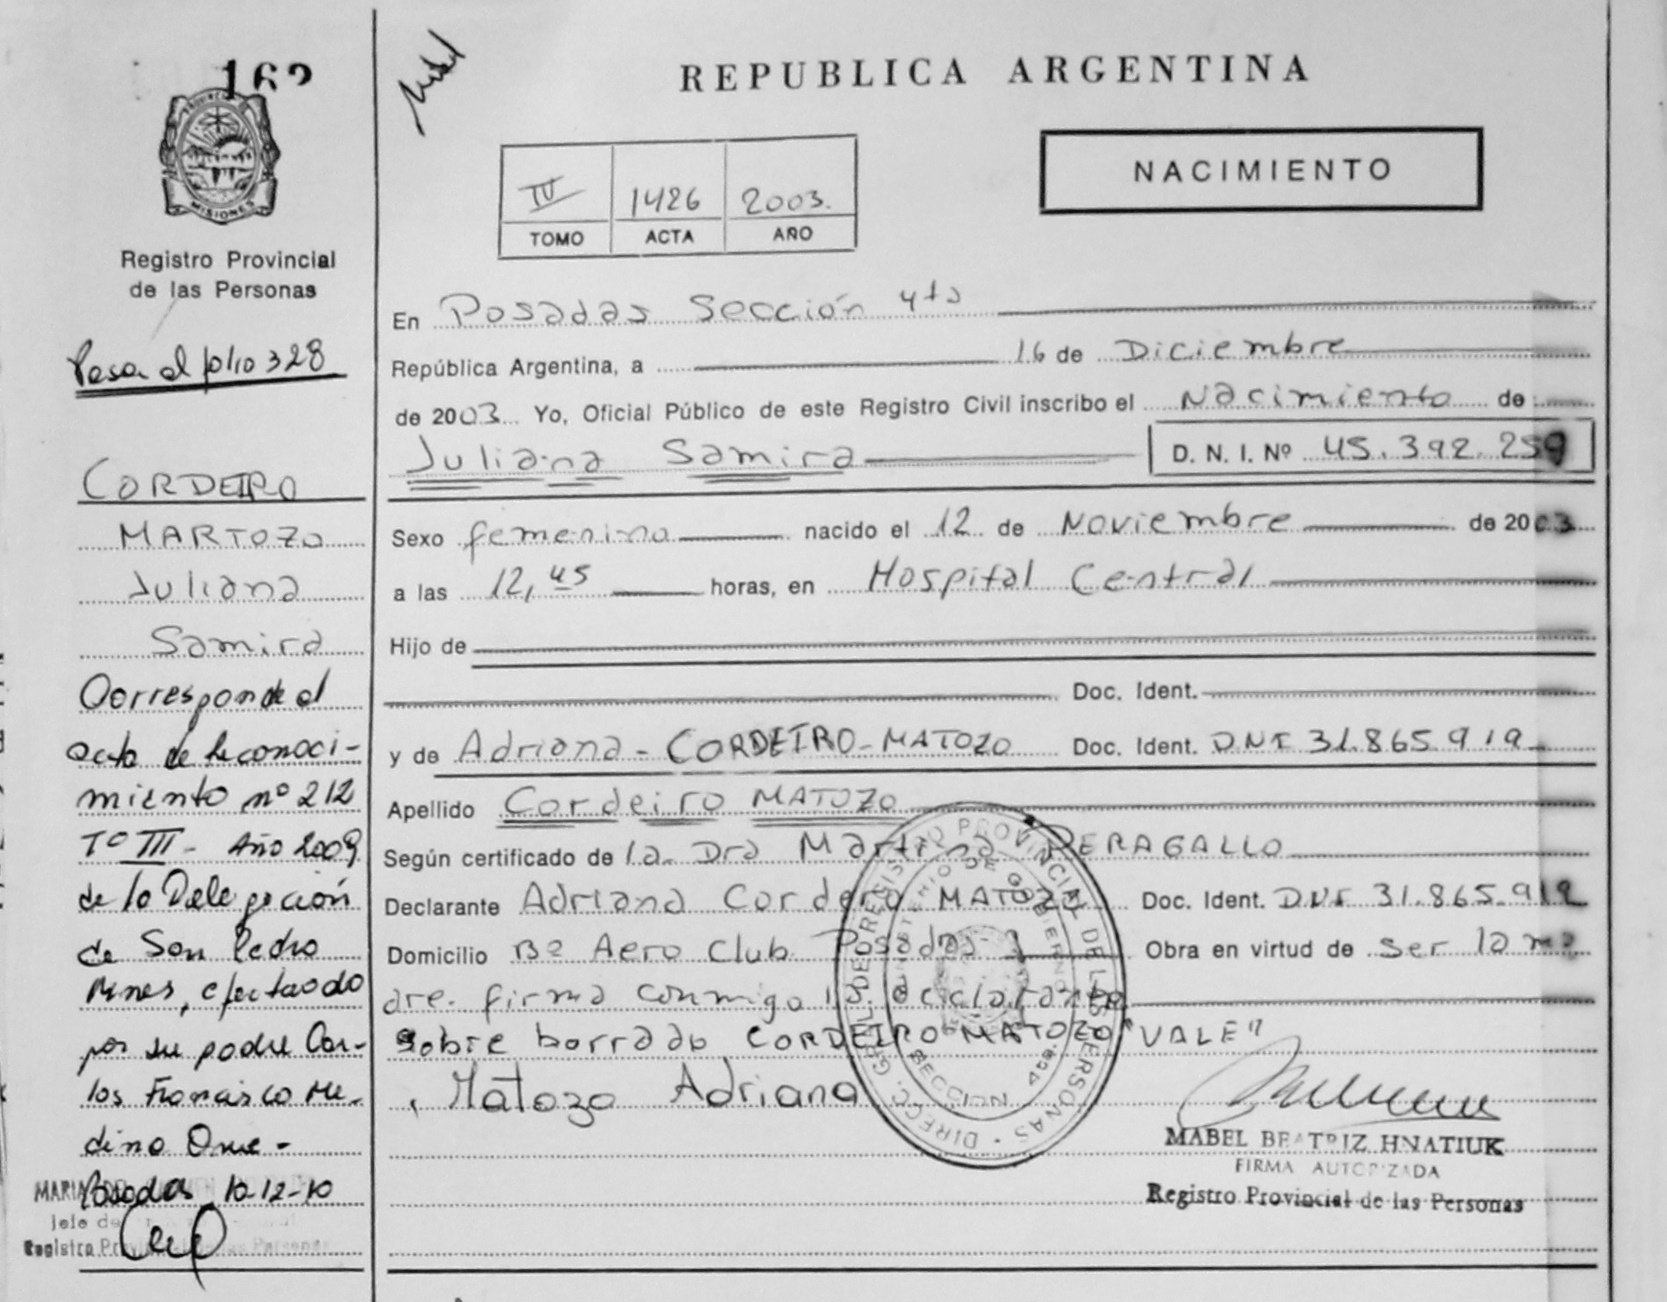 REPUBLICA ARGENTINA
NACIMIENTO
IV 1426 2003.
TOMO ACTA AÑO
MISIONES
Registro Provincial
de las Personas
Pasa al folio 328
CORDEIRO
MARTOZO
Juliana
Samira
Corresponde al
acta de Reconoci-
miento nº 212
Tº III - Año 2009
de la Delegación
de San Pedro
Mnes, efectuado
por su padre Car-
los Francisco Me-
dina
Posadas 10-12-10
En Posadas Sección 4ta
República Argentina, a 16 de Diciembre
de 2003. Yo, Oficial Público de este Registro Civil inscribo el Nacimiento de
Juliana Samira D. N. I. Nº 45.392.259
Sexo femenino nacido el 12 de Noviembre de 2003
a las 12,45 horas, en Hospital Central
Hijo de
Doc. Ident.
y de Adriana - CORDEIRO - MATOZO Doc. Ident. DNI 31.865.919
Apellido Cordeiro MATOZO
Según certificado de la Dra Martina PERAGALLO
Declarante Adriana Cordero MATOZO Doc. Ident. DNI 31.865.919
Domicilio Bº Aero Club Posadas Obra en virtud de ser la ma
dre. firma conmigo la declarante
sobre borrado CORDEIRO MATOZO "VALE"
Matozo Adriana
DIRECC. GRAL. DE REGISTRO PROVINCIAL DE LAS PERSONAS
MINISTERIO DE GOBIERNO
SECCION 4ta.
MABEL BEATRIZ HNATIUK
FIRMA AUTORIZADA
Registro Provincial de las Personas